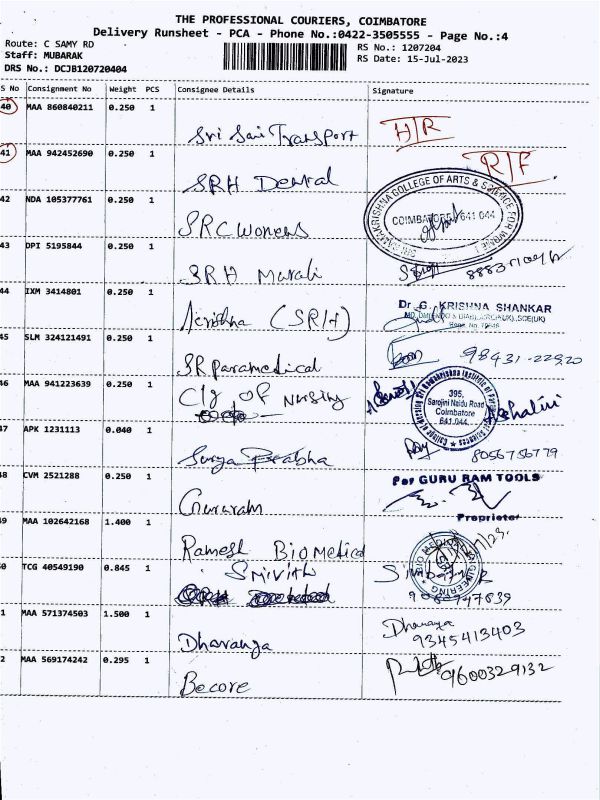 THE PROFESSIONAL COURIERS, COIMBATORE
Delivery Runsheet - PCA - Phone No.:0422-3505555 - Page No.:4
Route: C SAMY RD
RS No.: 1207204
Staff: MUBARAK
RS Date: 15-Jul-2023
DRS No.: DCJB120720404
S No Consignment No Weight PCS Consignee Details Signature
40 MAA 860840211 0.250 1 Sri Sai Transport H/R
41 MAA 942452690 0.250 1 SRH Dental R/F
42 NDA 105377761 0.250 1 SRC Womens
SRI RAMAKRISHNA COLLEGE OF ARTS & SCIENCE FOR WOMEN
COIMBATORE 641 044
43 DPI 5195844 0.250 1 SRH Murali
44 IXM 3414801 0.250 1 (SRH)
Dr. G. KRISHNA SHANKAR
45 SLM 324121491 0.250 1 SR paramedical 98431-22920
46 MAA 941223639 0.250 1 Clg OF Nursing
395,
Sarojini Naidu Road
Coimbatore
641 044
47 APK 1231113 0.040 1 Surya Prabha 8056756779
48 CVM 2521288 0.250 1 Gururam
For GURU RAM TOOLS
Proprietor
49 MAA 102642168 1.400 1 Ramesh BioMedical
BIO MEDICAL ENGINEERING
50 TCG 40549190 0.845 1 Srivith
1 MAA 571374503 1.500 1 Dharanya Dharanya
9345413403
2 MAA 569174242 0.295 1 Becore 9600329132